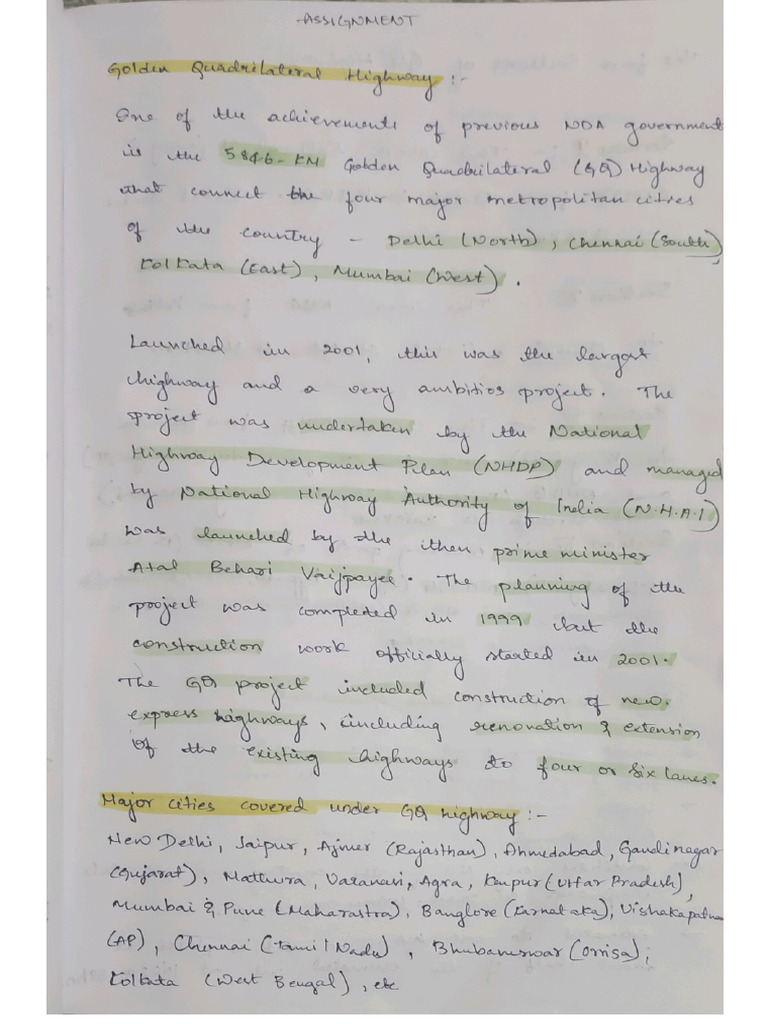 ASSIGNMENT
Golden Quadrilateral Highway :-
One of the achievements of previous NDA government
is the 5846-KM Golden Quadrilateral (GQ) Highway
that connect the four major metropolitan cities
of the country - Delhi (North), Chennai (South),
Kolkata (East), Mumbai (West).
Launched in 2001, this was the largest
highway and a very ambitios project. The
project was undertaken by the National
Highway Development Plan (NHDP) and managed
by National Highway Authority of India (N.H.A.I)
was launched by the then prime minister
Atal Behari Vaijpayee. The planning of the
project was completed in 1999 but the
construction work officially started in 2001.
The GQ project included construction of new.
express highways, including renovation & extension
of the existing highways to four or six lanes.
Major cities covered under GQ highway :-
New Delhi, Jaipur, Ajmer (Rajasthan), Ahmedabad, Gandinagar
(Gujarat), Mattura, Varanavi, Agra, Kanpur (Uttar Pradesh),
Mumbai & Pune (Maharastra), Banglore (Karnataka), Vishakapatnam
(AP), Chennai (Tamil Nadu), Bhubaneswar (Orrisa),
Kolkata (West Bengal), etc